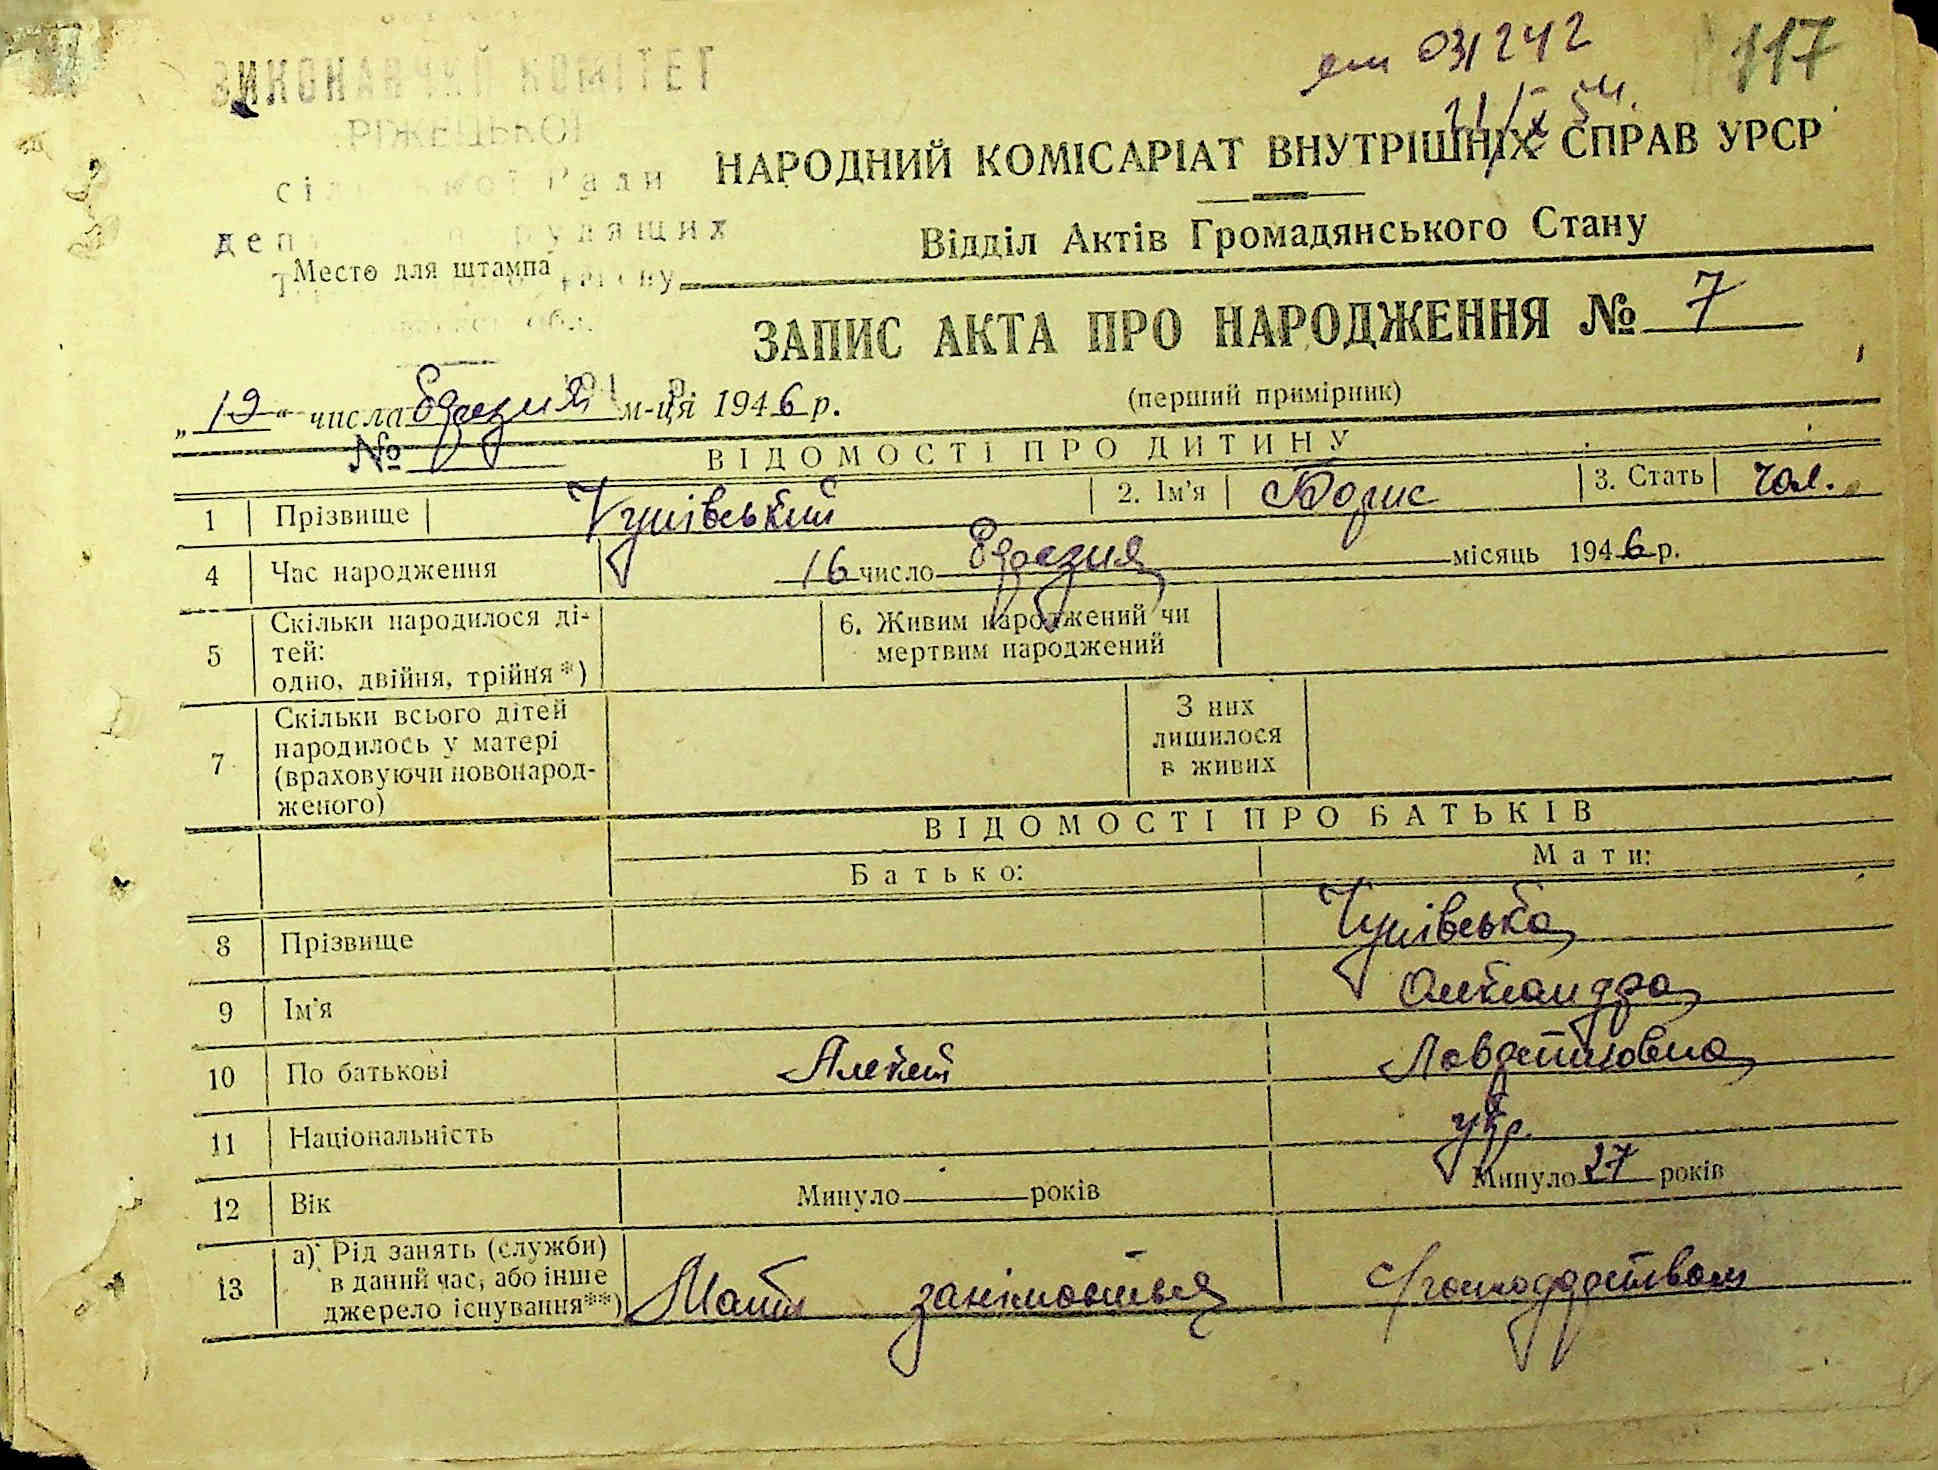 ВИКОНАВЧИЙ КОМІТЕТ
117
НАРОДНИЙ КОМІСАРІАТ ВНУТРІШНІХ СПРАВ УРСР
Відділ Актів Громадянського Стану
Место для штампа
ЗАПИС АКТА ПРО НАРОДЖЕННЯ № 7
(перший примірник)
„19“ числа березня м-ця 1946 р.
№
ВІДОМОСТІ ПРО ДИТИНУ
1 Прізвище 2. Ім'я Борис 3. Стать чол.
4 Час народження 16 число березня місяць 1946 р.
5 Скільки народилося ді-
тей:
одно, двійня, трійня*)
6. Живим народжений чи
мертвим народжений
7 Скільки всього дітей
народилось у матері
(враховуючи новонарод-
женого)
З них
лишилося
в живих
ВІДОМОСТІ ПРО БАТЬКІВ
Батько: Мати:
8 Прізвище
9 Ім'я Олександра
10 По батькові Алексей
11 Національність укр.
12 Вік Минуло років Минуло 27 років
13 а) Рід занять (служби)
в даний час, або інше
джерело існування**)
Мати